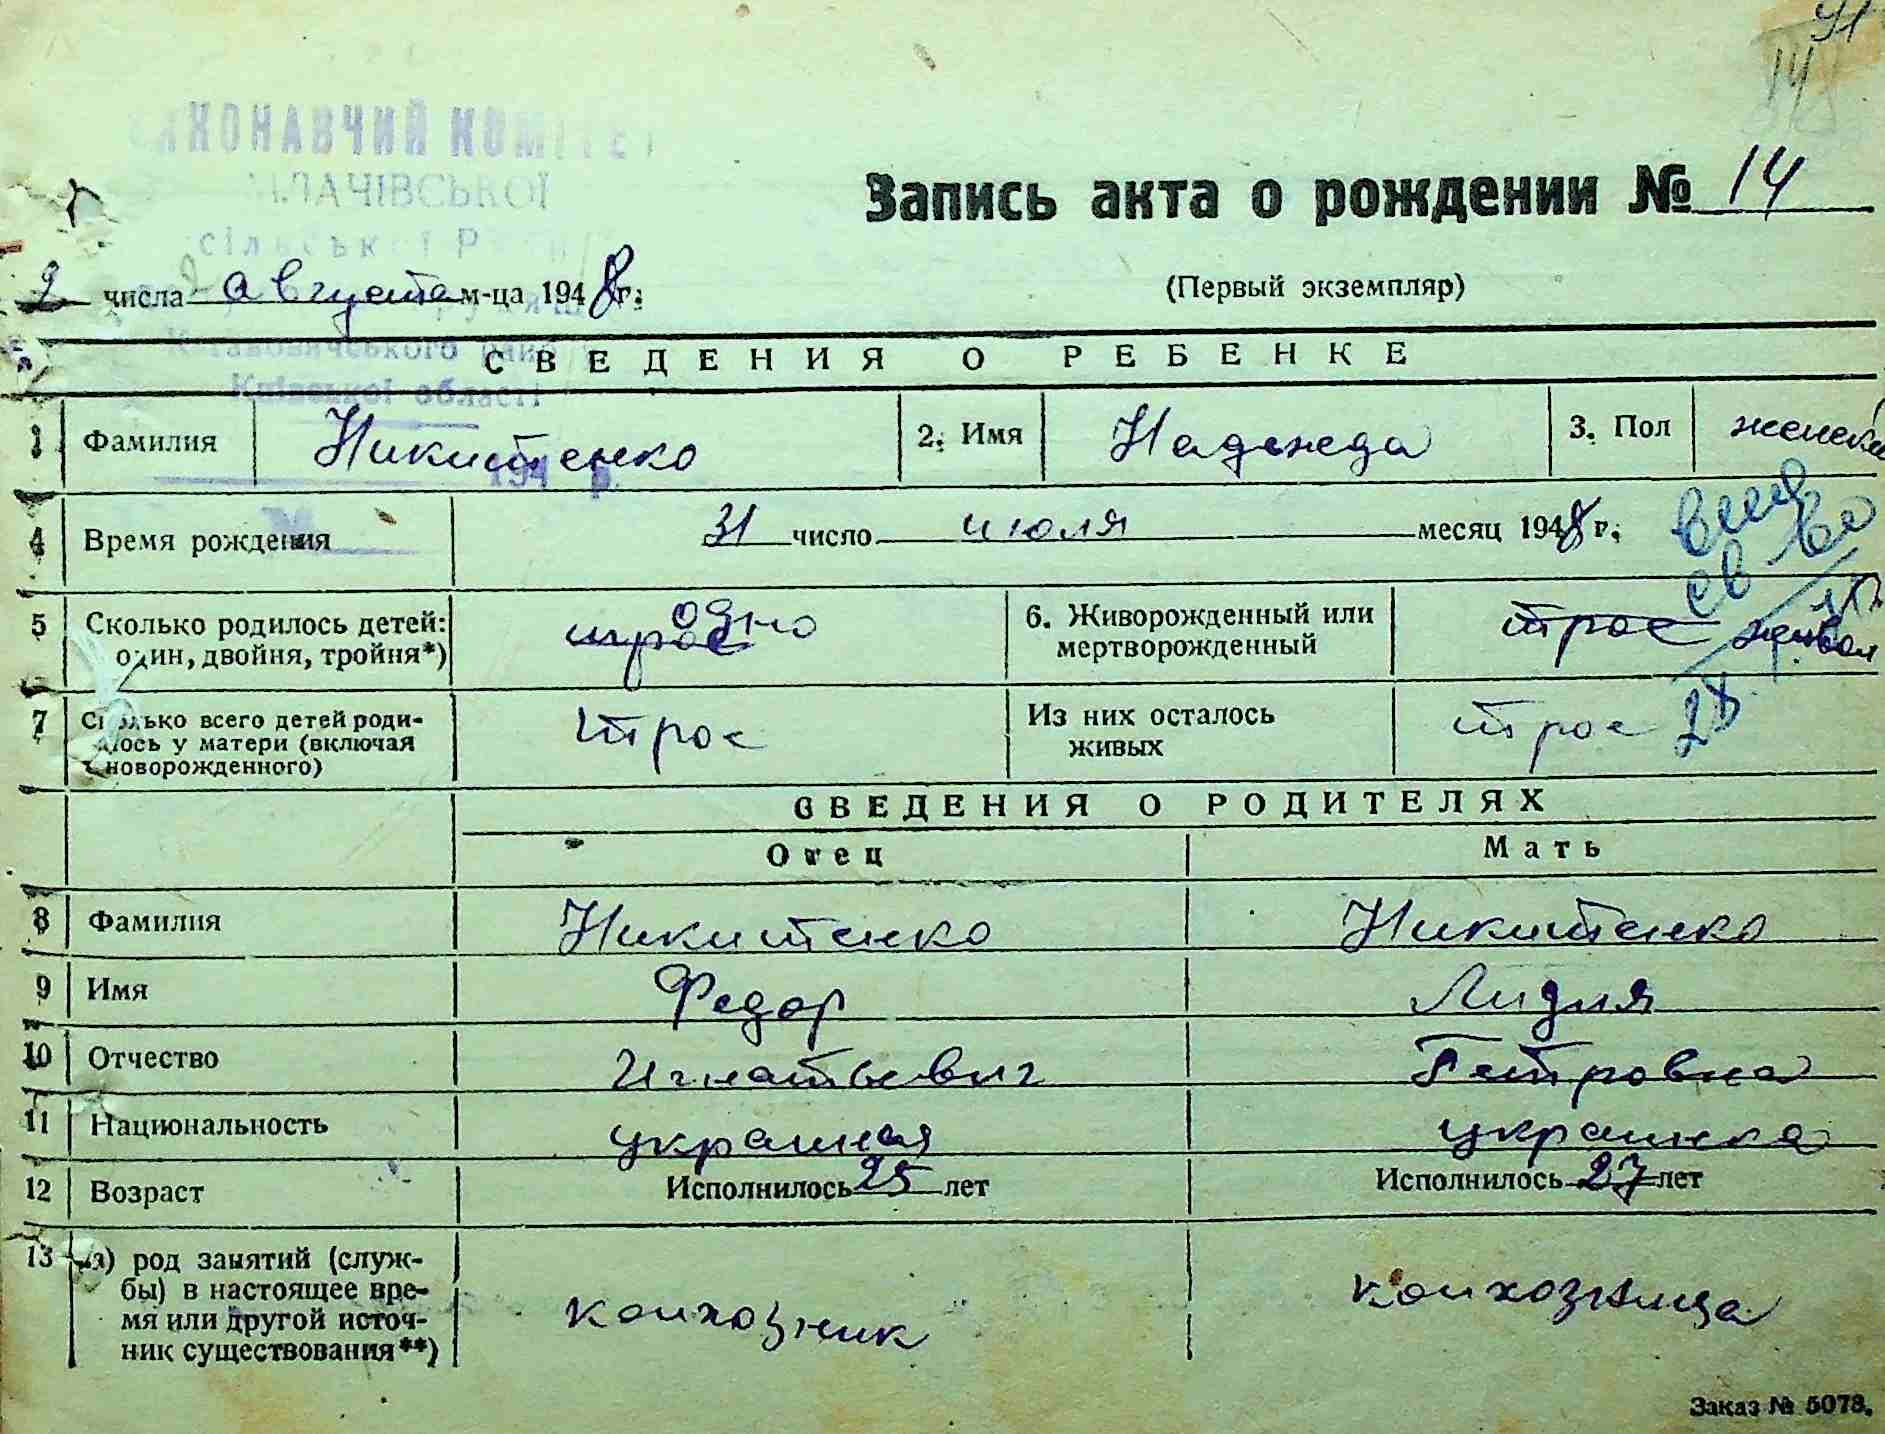 91
14
КОНАВЧИЙ КОМІТЕТ
МЛАЧІВСЬКОЇ
сільської Ради
Запись акта о рождении № 14
2 числа августа м-ца 1948 г.
(Первый экземпляр)
Кагановичського району
СВЕДЕНИЯ О РЕБЕНКЕ
Київської області
1 Фамилия Никитенко 2. Имя Надежда 3. Пол женски
194 р.
4 Время рождения 31 число июля месяц 1948 г.
5 Сколько родилось детей: один, двойня, тройня*) трое одно 6. Живорожденный или мертворожденный трое
7 Сколько всего детей родилось у матери (включая новорожденного) трое Из них осталось живых трое
СВЕДЕНИЯ О РОДИТЕЛЯХ
Отец Мать
8 Фамилия Никитенко Никитенко
9 Имя Федор Лидия
10 Отчество Игнатьевич Петровна
11 Национальность украинка
12 Возраст Исполнилось 25 лет Исполнилось 27 лет
13 а) род занятий (служ-
бы) в настоящее вре-
мя или другой источ-
ник существования**) колхозник колхозница
Заказ № 5078.